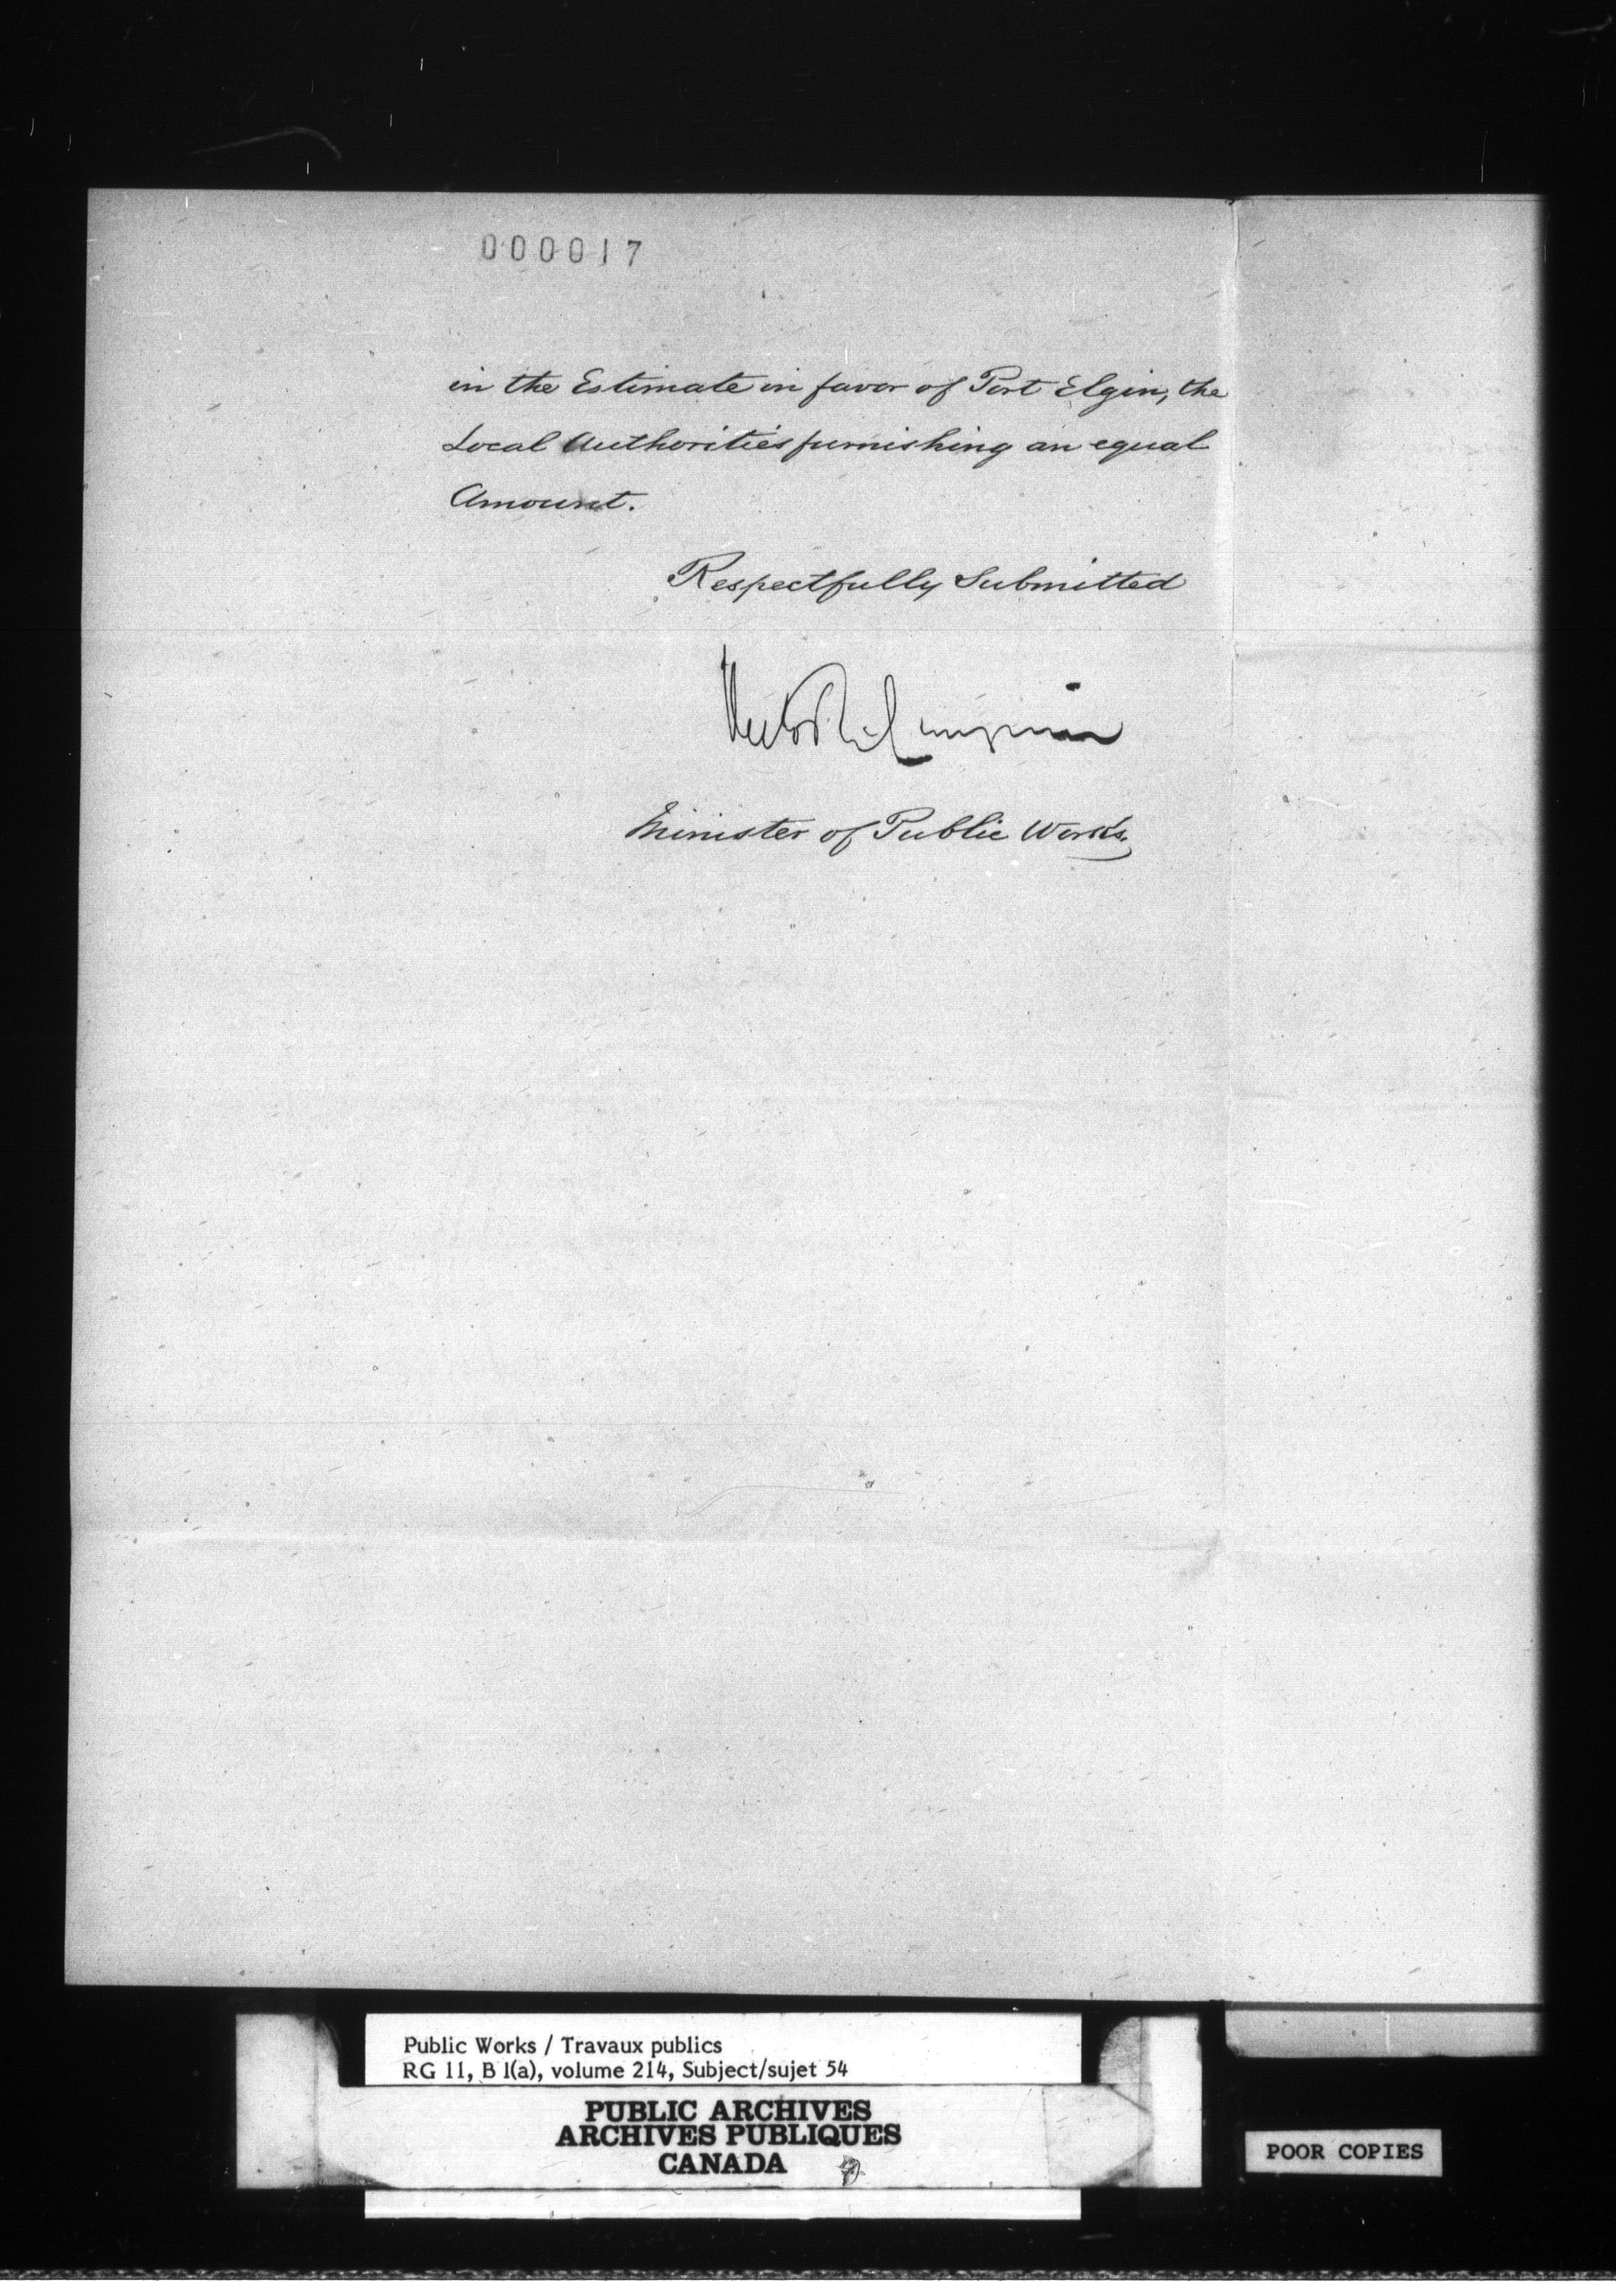 000017
in the Estimate in favor of Port Elgin, the
Local Authorities furnishing an equal
Amount.
Respectfully Submitted
Hector L. Langevin
Minister of Public Works.
Public Works / Travaux publics
RG 11, B 1(a), volume 214, Subject/sujet 54
PUBLIC ARCHIVES
ARCHIVES PUBLIQUES
CANADA
POOR COPIES